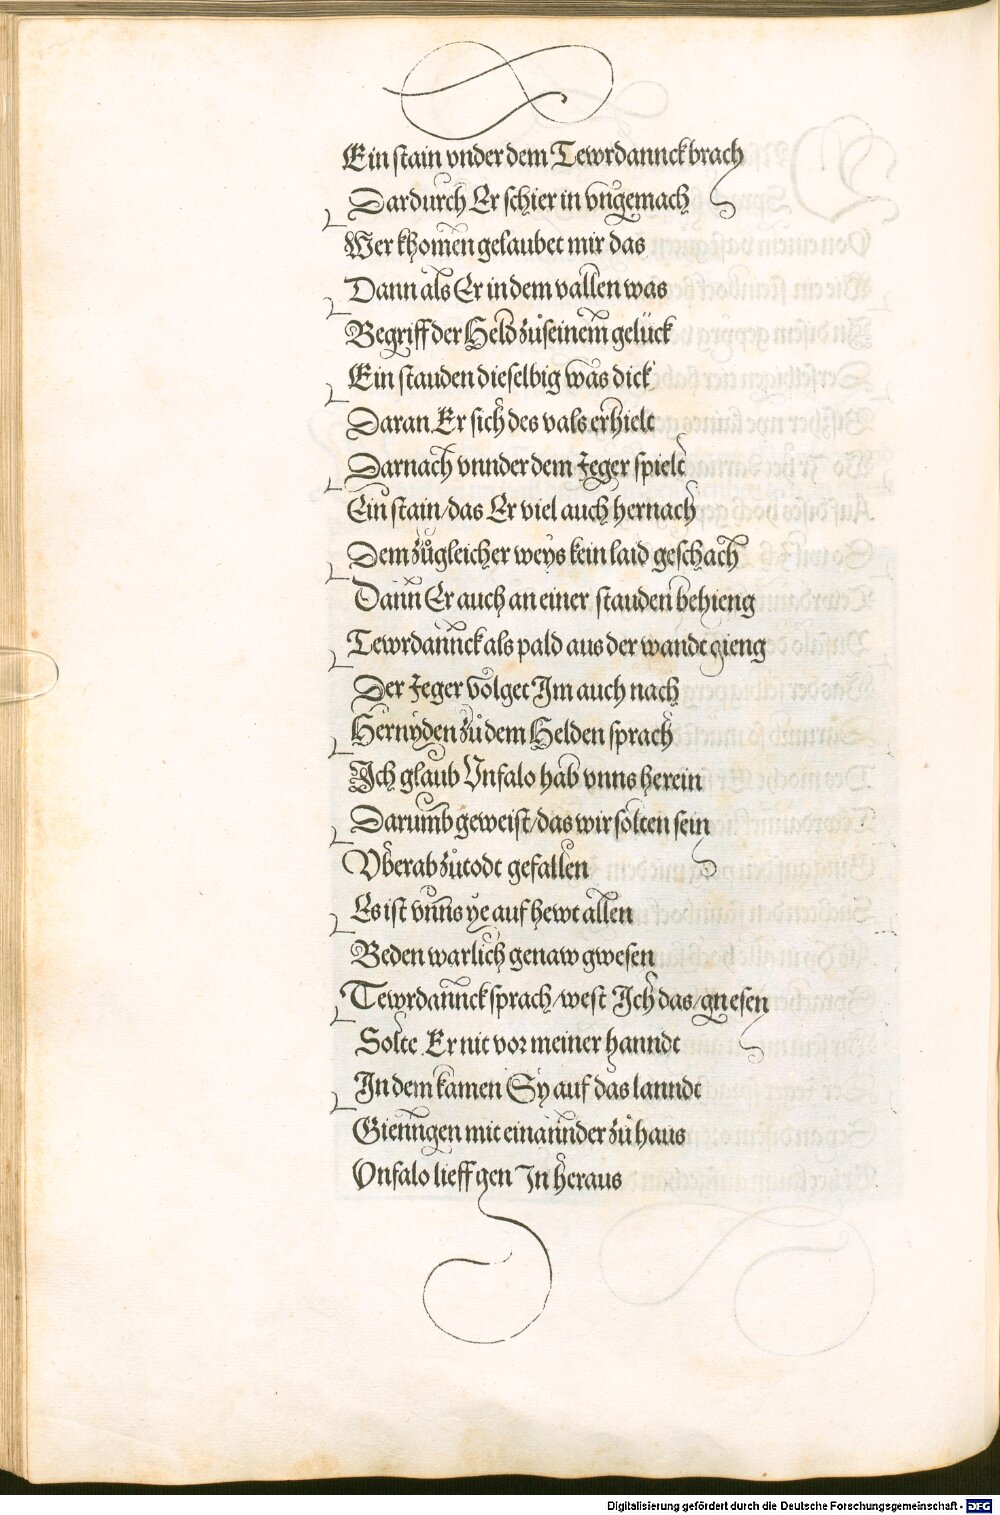 Ein stain vnder dem Tewrdannck brach
Dardurch Er schier in vngemach
Wer khomen gelaubet mir das
Dann als Er in dem vallen was
Begriff der Held zůseinem gelück
Ein stauden dieselbig was dick
Daran Er sich des vals erhielt
Darnach vnnder dem Jeger spielt
Ein stain/das Er viel auch hernach
Dem zůgleicher weys kein laid geschach
Dann Er auch an einer stauden behieng
Tewrdannck als pald aus der wandt gieng
Der Jeger volget Im auch nach
Hernyden zů dem Helden sprach
Ich glaub Vnfalo hab vnns herein
Darumb geweist/das wir solten sein
Vberab zůtodt gefallen
Es ist vnns ye auf hewt allen
Beden warlich genaw gwesen
Tewrdannck sprach/west Ich das/gnesen
Solte Er nit vor meiner hanndt
In dem kamen Sy auf das lanndt
Gienngen mit einannder zů haus
Vnfalo lieff gen In heraus
Digitalisierung gefördert durch die Deutsche Forschungsgemeinschaft - DFG